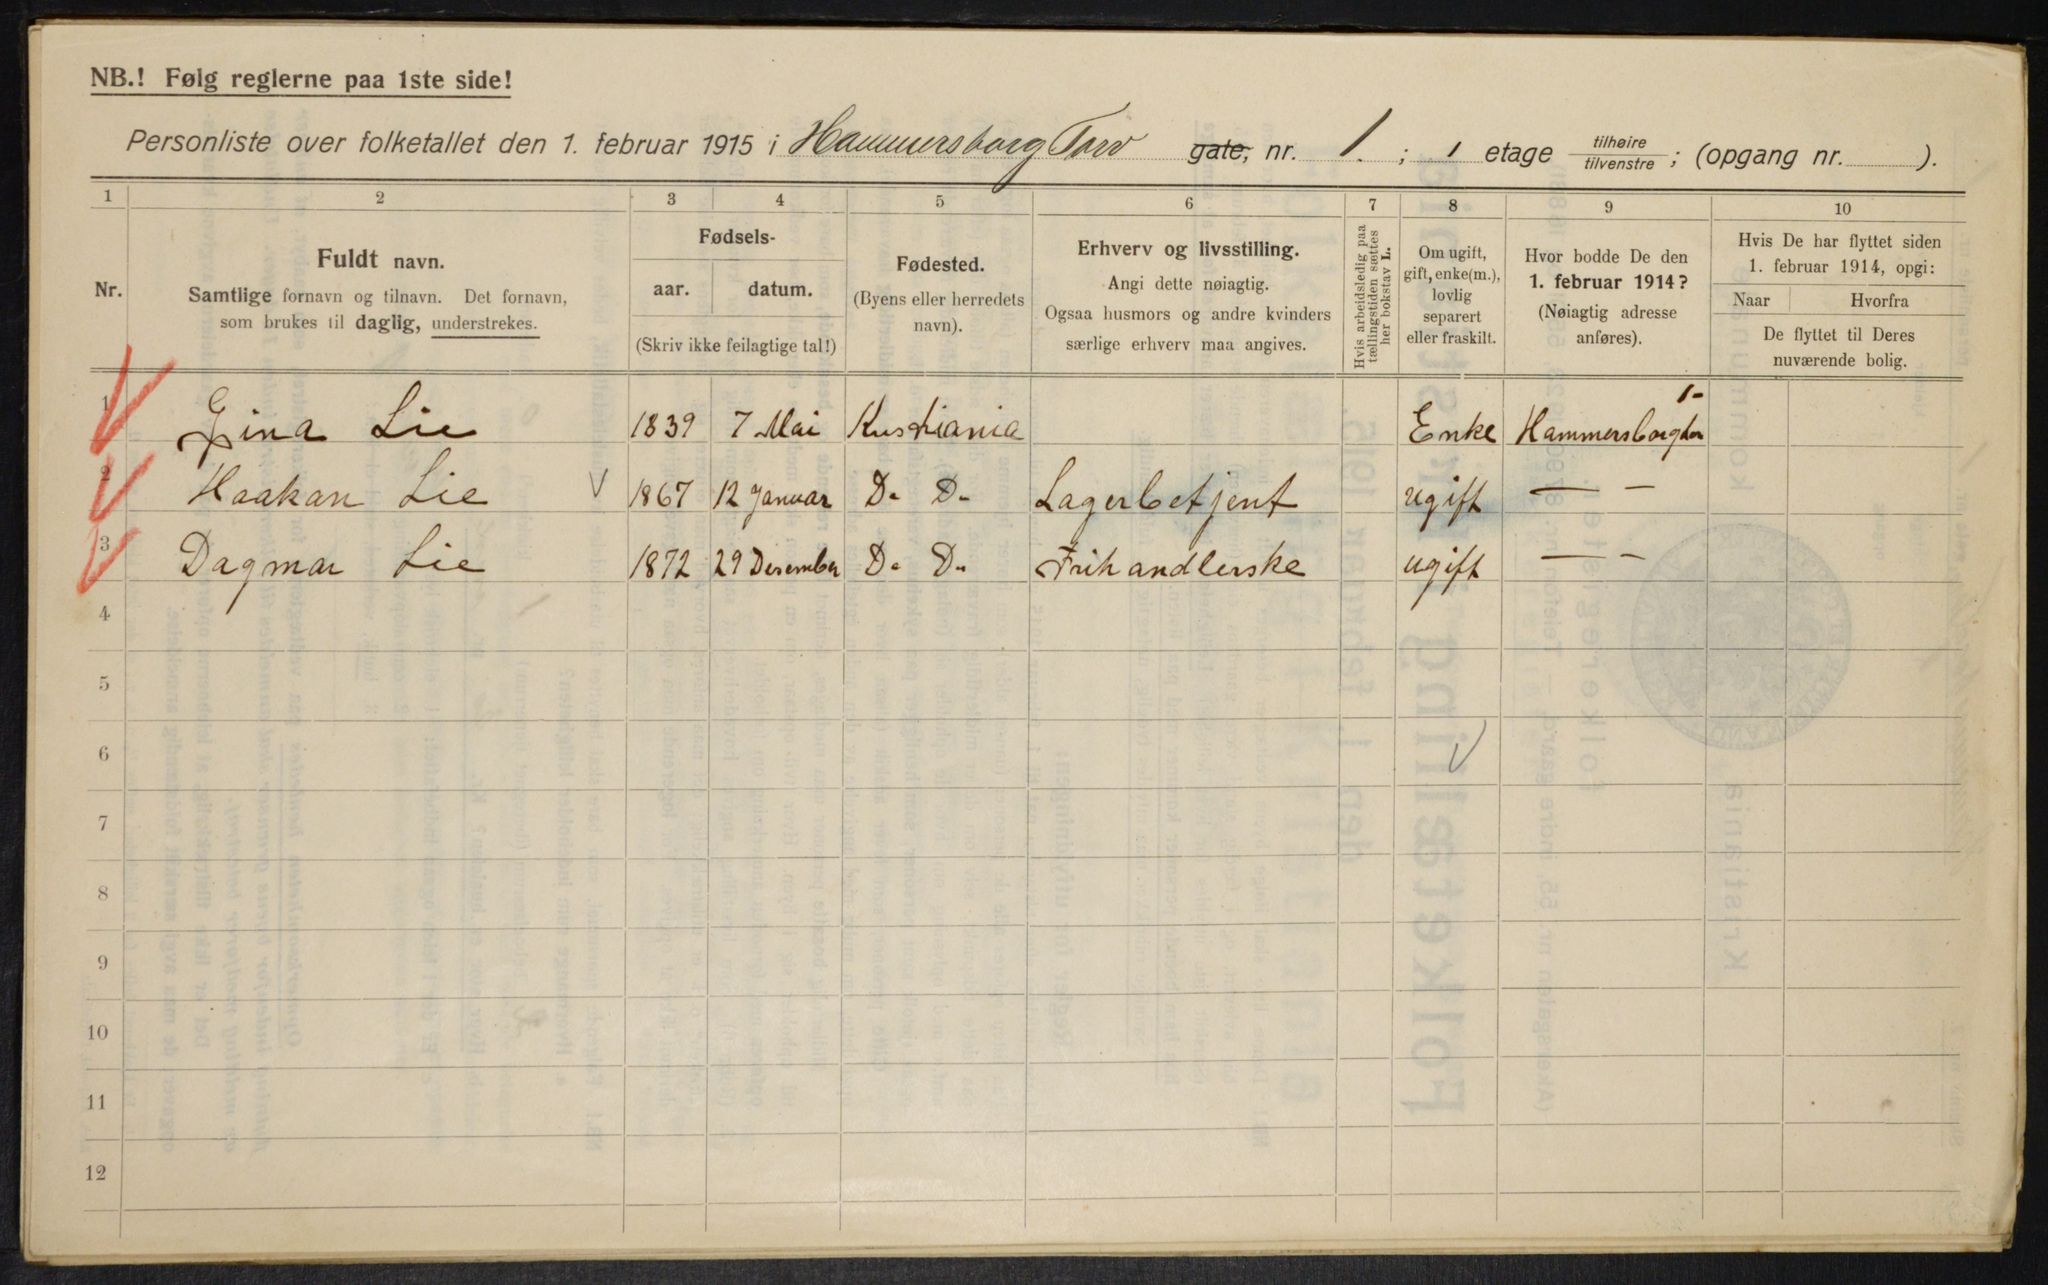 NB.! Følg reglerne paa 1ste side!
Personliste over folketallet den 1. februar 1915 i Hammersborg Torv gate, nr. 1. ; 1 etage tilhøire tilvenstre ; (opgang nr. ).
1 2 3 4 5 6 7 8 9 10
Nr.
Fuldt navn.
Samtlige fornavn og tilnavn. Det fornavn,
som brukes til daglig, understrekes.
Fødsels-
aar. datum.
(Skriv ikke feilagtige tal!)
Fødested.
(Byens eller herredets
navn).
Erhverv og livsstilling.
Angi dette nøiagtig.
Ogsaa husmors og andre kvinders
særlige erhverv maa angives.
Hvis arbeidsledig paa
tællingstiden sættes
her bokstav L.
Om ugift,
gift, enke(m.),
lovlig
separert
eller fraskilt.
Hvor bodde De den
1. februar 1914?
(Nøiagtig adresse
anføres).
Hvis De har flyttet siden
1. februar 1914, opgi:
Naar Hvorfra
De flyttet til Deres
nuværende bolig.
1 Gina Lie 1839 7 Mai Kristiania Enke Hammersborgtor 1-
2 Haakan Lie V 1867 12 Januar D- D- Lagerbetjent ugift — –
3 Dagmar Lie 1872 29 Desember D- D- Frihandlerske ugift — –
4
5
6
7
8
9
10
11
12